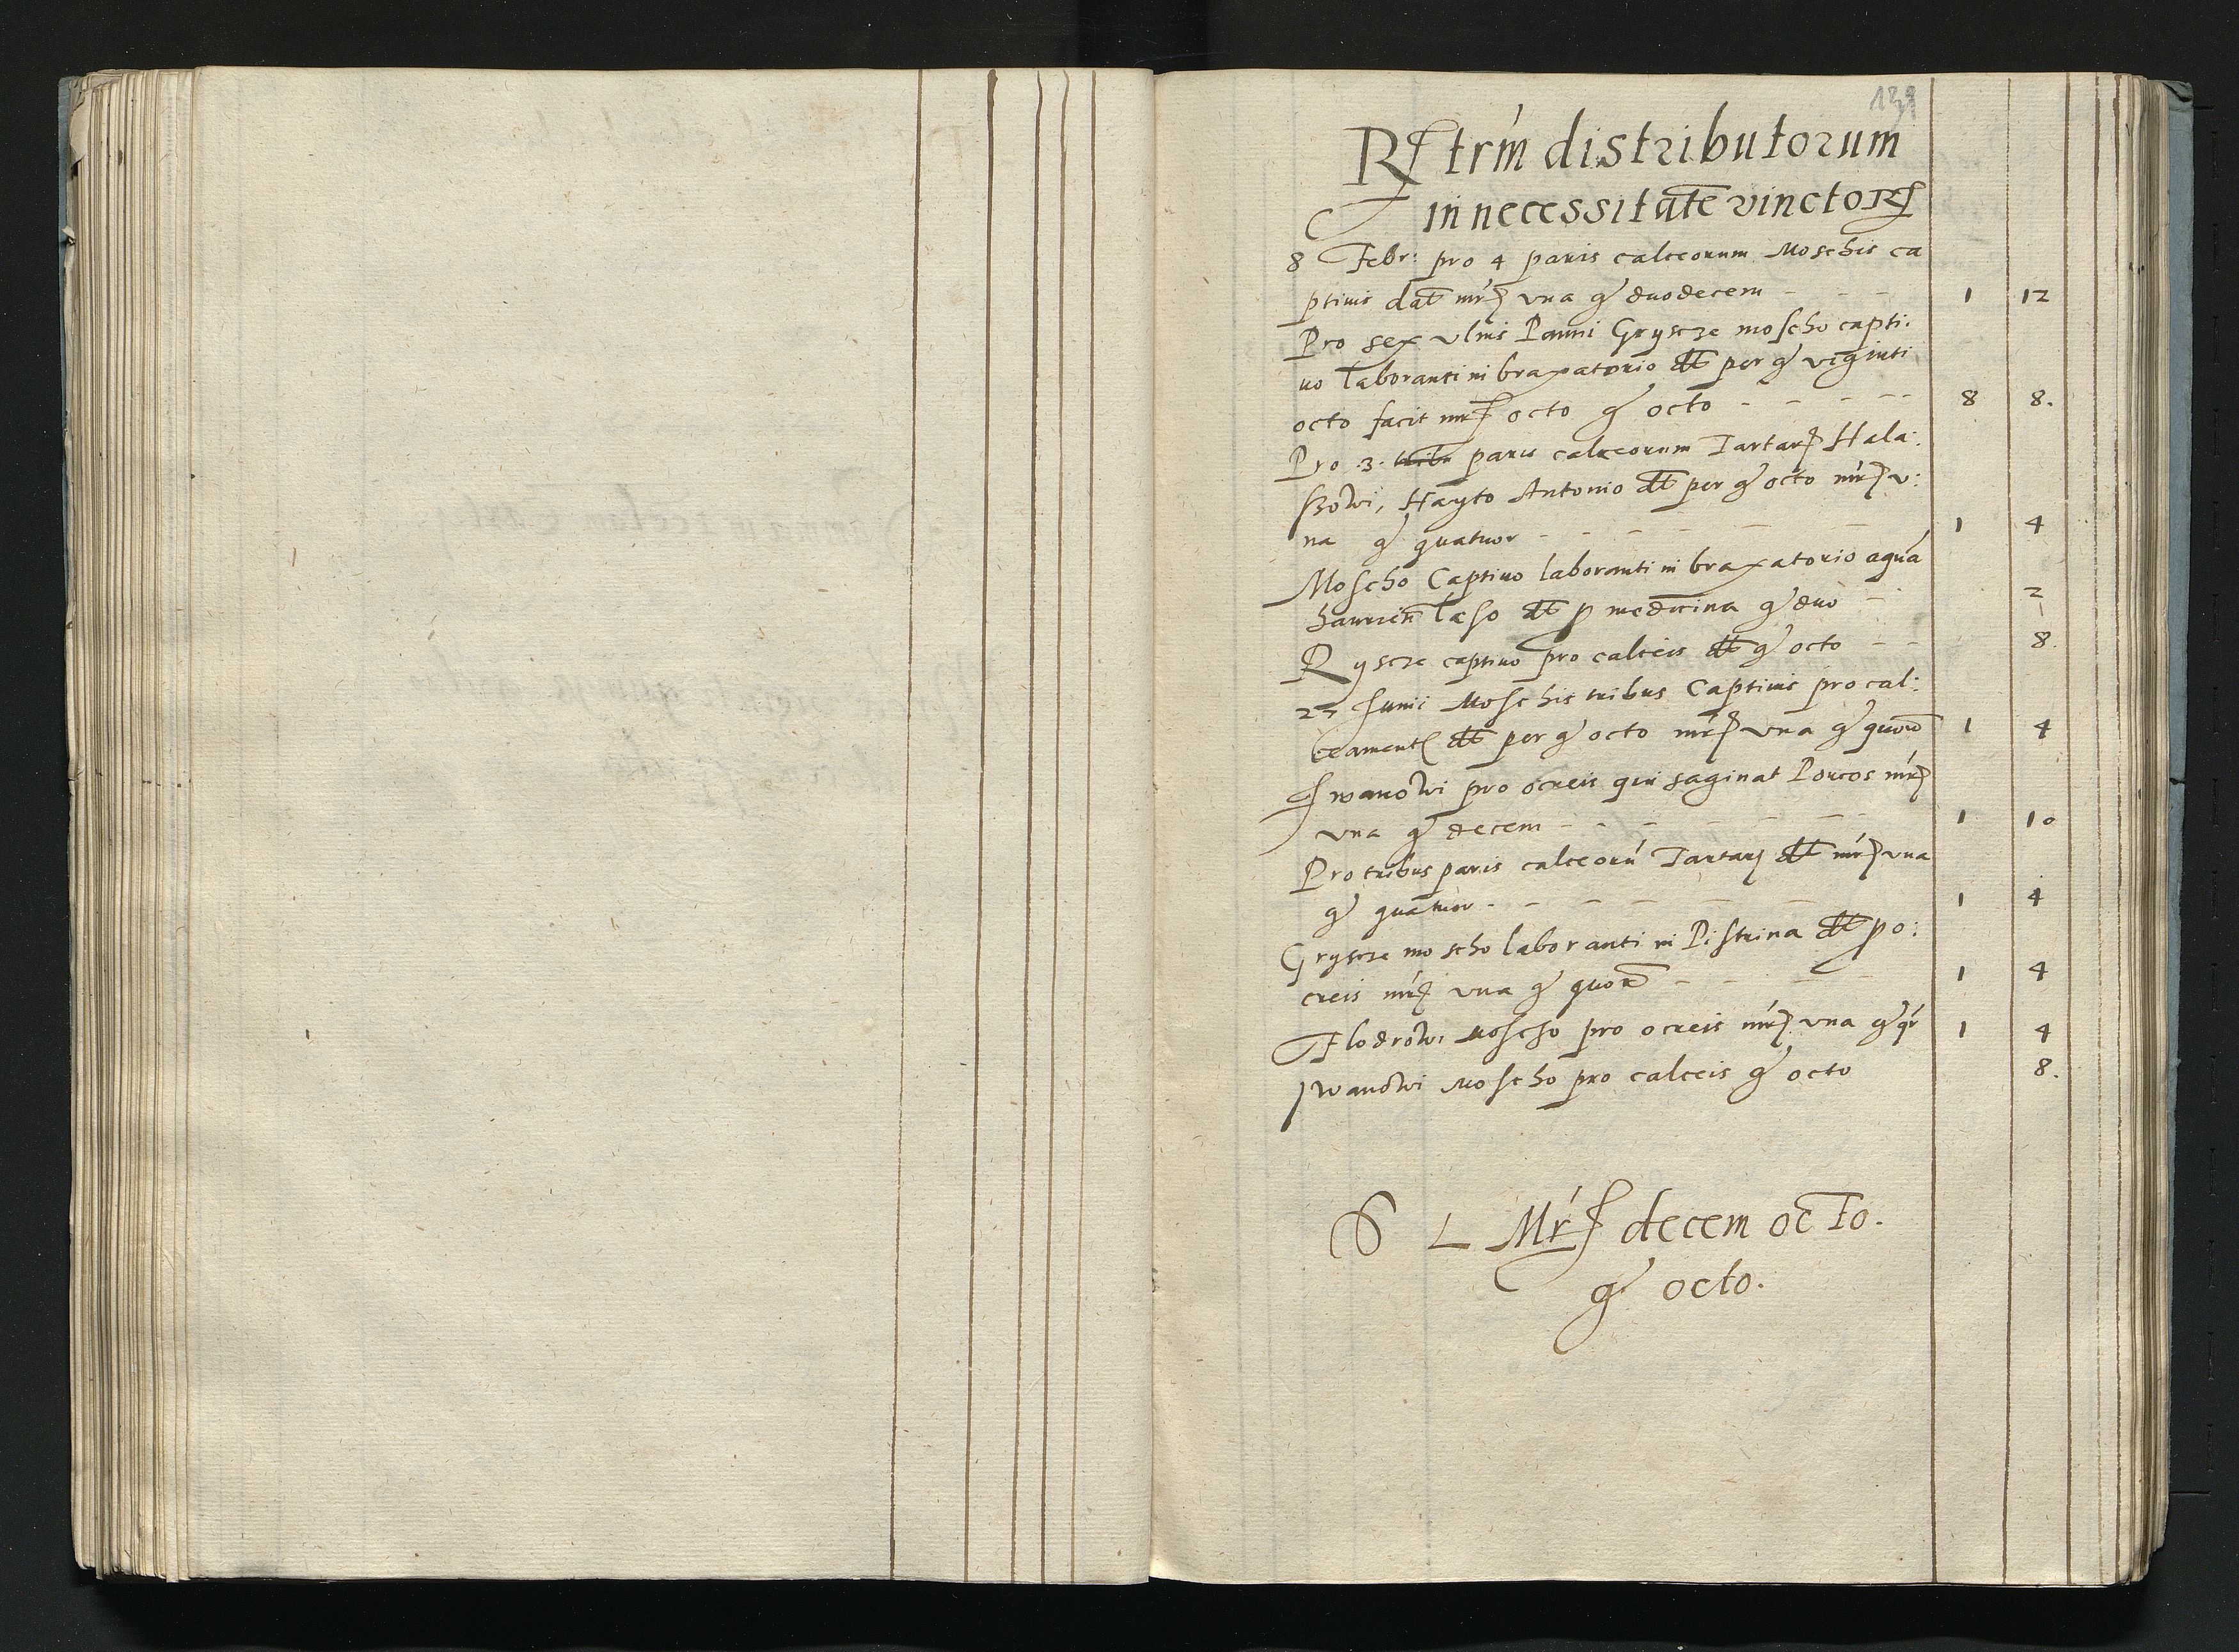 Rstrm distributorum
in necessitate vinctor
8 Febr: pro 4 paris calceorum Moschis ca
ptiuis dat mr vna g duodecem - - - 1 12
Pro sex vlnis Panni Gryscze moscho capti.
uo laboranti in braxatorio dt per g viginti
octo facit mr octo g octo - - - - - 8 8.
Pro .3. tribu paris calceorum Tartar Hala:
ssowi, Hayto Antonio dt per g octo mr v:
na g quatuor - - - - - - 1 4
Moscho Captiuo laboranti in braxatorio aqua
haurien læso dt p medicina g duo - 2
Ryscze captiuo pro calceis dt g octo - - 8.
27 Junii Moschis tribus Captiuis pro cal:
ceament dt per g octo mr vna g quor 1 4
Iwanowi pro ocreis qui saginat Porcos mr
vna g decem - - - - - - 1 10
Pro tribus paris calceoru Tartar dt mr vna
g quatuor - - - - - - 1 4
Gryscze moscho laboranti in Pistrina dt p o:
creis mr vna g quor - - - - 1 4
Flodrowi Moscho pro ocreis mr vna g qr 1 4
Iwanowi Moscho pro calceis g octo 8.
S L Mr decem octo.
g octo.